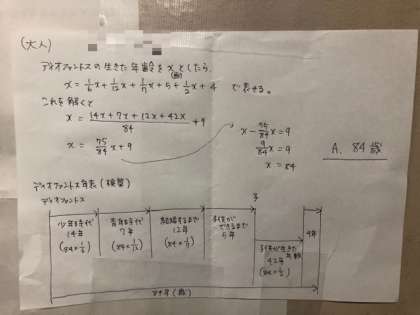 (大人)
ディオファントスの生きた年齢を x としたら、
(歳)
x = 1/6x + 1/12x + 1/7x + 5 + 1/2x + 4 で表せる。
これを解くと
x = 14x + 7x + 12x + 42x / 84 + 9
x = 75/84x + 9
x - 75/84x = 9
9/84x = 9
x = 84
A. 84歳
ディオファントス年表(検算)
ディオファントス
子
少年時代
14年
(84×1/6)
青年時代
7年
(84×1/12)
結婚するまで
12年
(84×1/7)
子供が
できるまで
5年
子供が生きた
42年 年数
(84×1/2)
4年
84年(歳)